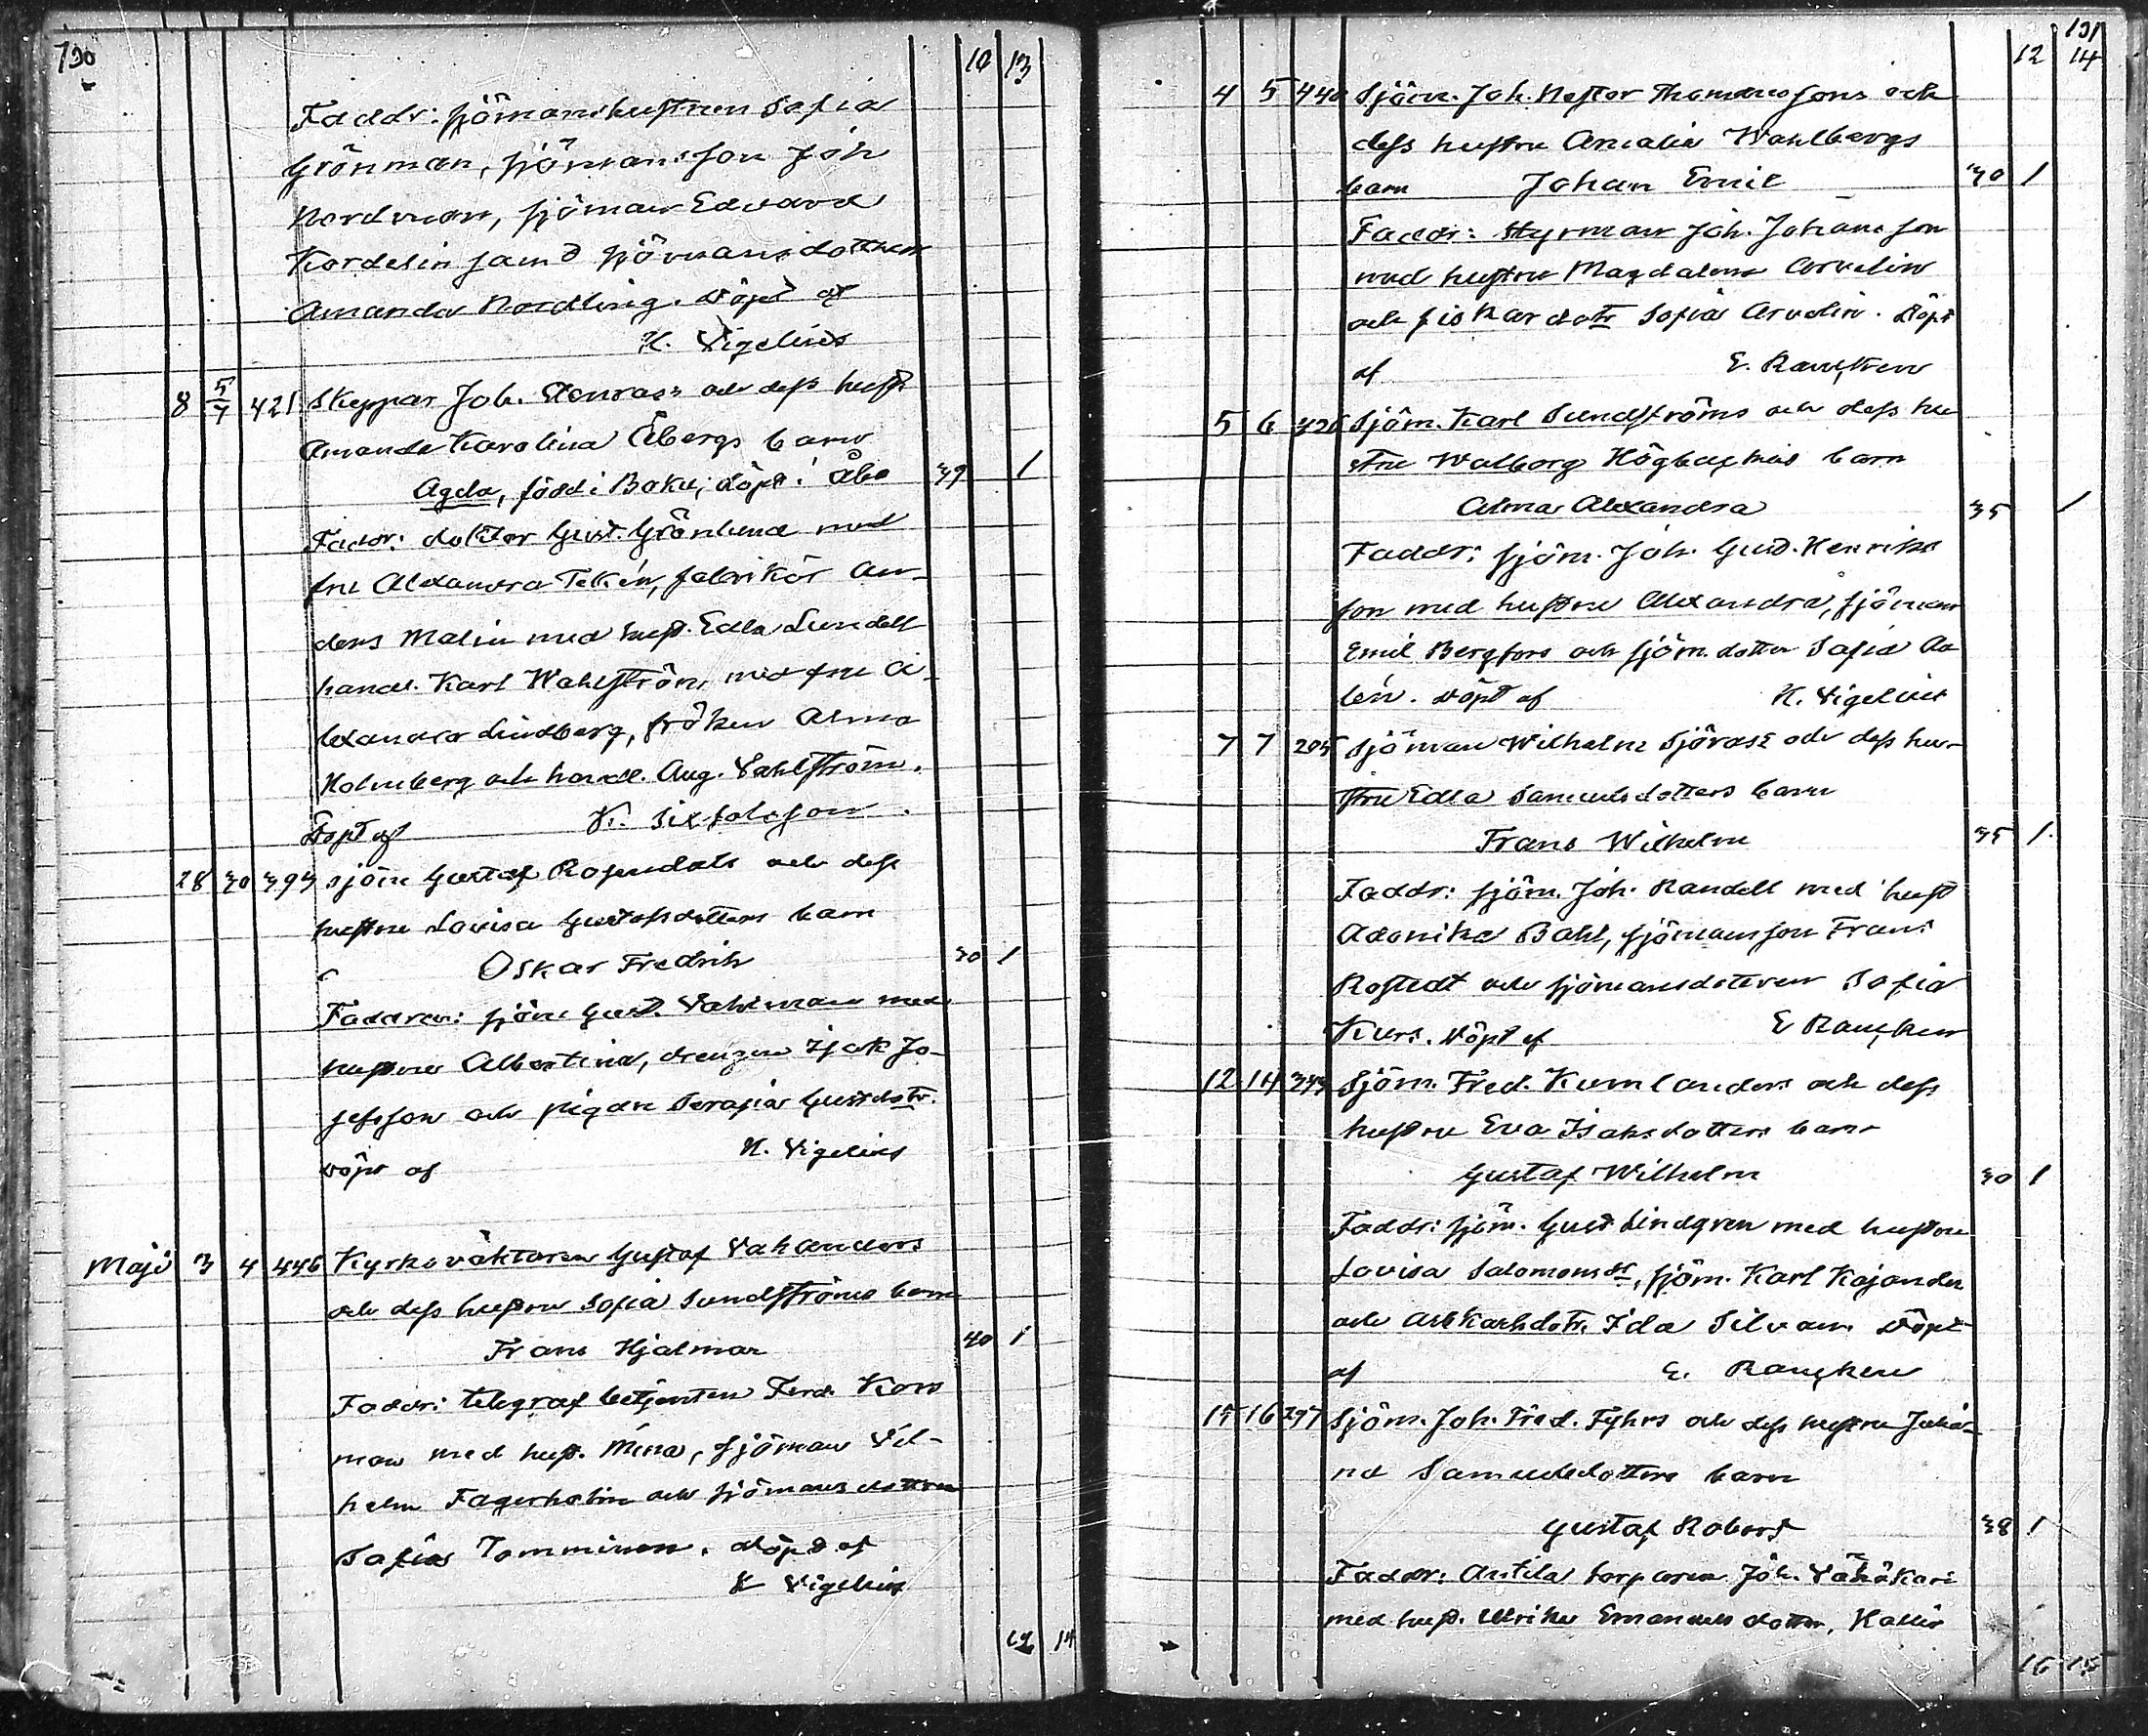 130
10 13
Faddr: sjömanshustrun Sofia
Grönman, sjömansson Joh
Nordman, sjöman Edvard
Kordelin samt sjömansdottren
Amanda Nordling. Döpt af
K. Vigelius
8 5/7 421 Skeppar Joh. och dess hust
Amanda Karolina Åbergs barn
Agda, född i Baku, döpt i Åbo 39 1
Faddr: doktor Gust. Grönlund med
fru Alexandra Tekén, fabrikör An-
ders Malin med hust. Edla Lundell
handl. Karl Wahlström med fru A-
lexandra Lindberg, fröken Alma
Holmberg och handl. Aug. Vahlström.
Döpt af K. Sixtolsson.
28 30 393 Sjöm Gustaf Rosendals och dess
hustru Lovisa Gustafsdotters barn
Oskar Fredrik 30 1
Faddren: sjöm Gust. Vahlman med
hustru Albertina, drengen Isak Jo-
sefsson och pigan Serafia Gustdotr.
Döpt af K. Vigelius
Maji 3 4 446 Kyrkoväktaren Gustaf Vahlanders
och dess hustru Sofia Sundströms barn
Frans Hjalmar 40 1
Faddr: telegraf betjenten Ferd. Kors
man med hust. Mina, sjöman Vil-
helm Fagerholm och sjömansdottren
Sofia Tomminen. Döpt af
K Vigelius
12 14
131
12 14
4 5 440 Sjöm. Joh. Nestor Thomassons och
dess hustru Amalia Wahlbergs
barn Johan Emil 30 1
Faddr: Styrman Joh. Johansson
med hustru Magdalena Arvelin
och fiskardotr Sofia Arvelin. Döpt
af E. Rancken
5 6 326 Sjöm. Karl Sundströms och dess hu
stru Walborg barn
Alma Alexandra 35 1
Faddr: sjöm. Joh. Gust. Henriks
son med hustru Alexandra, sjöman
Emil Bergfors och sjöm. dotter Sofia Aa
lén. Döpt af K. Vigelius
7 7 205 Sjöman Wilhelm och dess hu-
stru Edla Samuelsdotters barn
Frans Wilhelm 35 1
Faddr: sjöm. Joh. Randell med hust
Adonika Bahl, sjömansson Frans
Rostedt och sjömansdottren Sofia
Kurs. Döpt af E Rancken
12 14 343 Sjöm. Fred. Kumlanders och dess
hustru Eva Isaksdotters barn
Gustaf Wilhelm 30 1
Faddr: sjöm. Gust Lindgren med hustru
Lovisa Salomonsdr, sjöm. Karl Kajander
och arbkarlsdotr. Ida Silvan. Döpt
af E. Rancken
15 16 297 Sjöm. Joh. Fred. Fyhrs och dess hustru Johan-
na Samuelsdotters barn
Gustaf Robert 38 1
Faddr: Antila torparen Joh. Vähäkari
med hust. Ulrika Emanuels dotter, Kallis
16 15